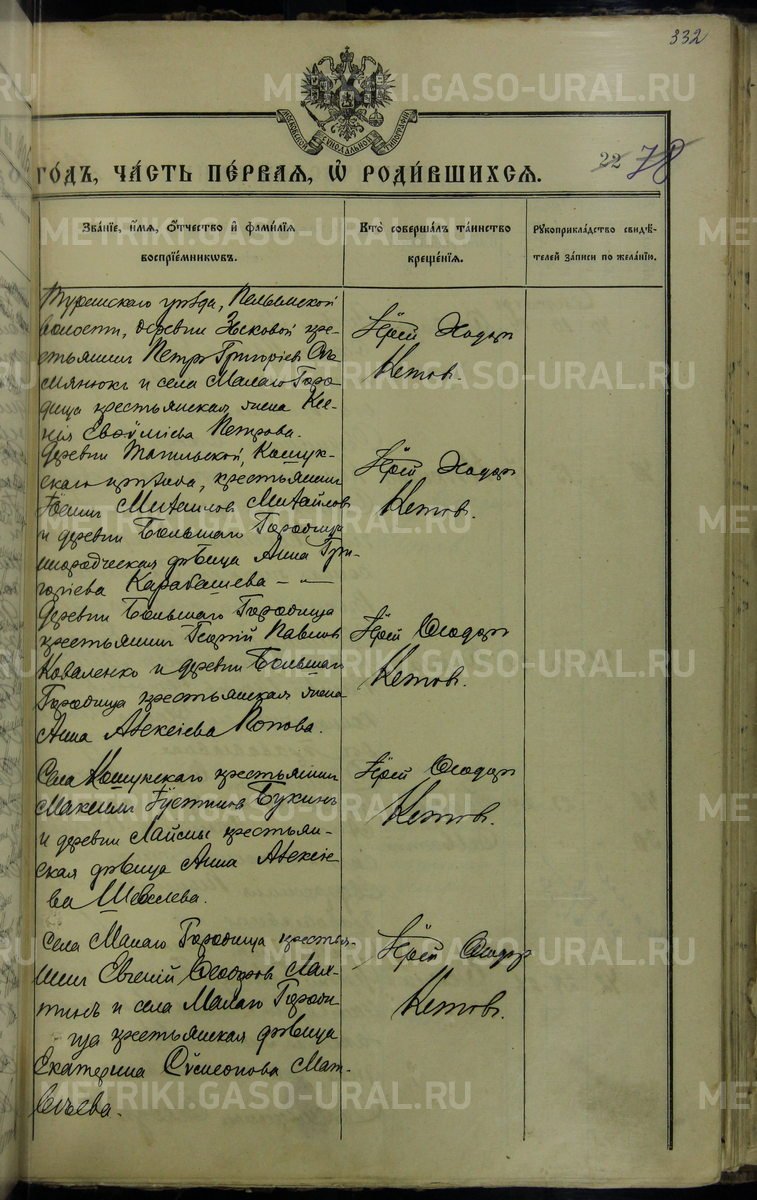 332
МОСКОВСКОЙ СѴНОДАЛЬНОЙ ТИПОГРАФІИ
го́дъ, ча́сть пе́рвая, ѡ҆ роди́вшихся.
22 78
Зва́нїе, и҆́мя, ѻ҆́тчество и҆ фами́лїя
воспрїе́мникѡвъ.
Кто̀ соверша́лъ та́инство
креще́нїя.
Рꙋкоприкла́дство свидѣ́-
телей за́писи по жела́нїю.
Туринскаго уѣзда, Пелымской
волости, деревни Зыковой кре-
стьянинъ Петръ Григоріев
и села Малаго Горо
дища крестьянская жена Ксе-
нія Евѳиміева Петрова.
Іерей Ѳеодоръ
Кетовъ.
деревни Тагильской, Кошук-
скаго прихода, крестьянинъ
Михаилов Михайлов
и деревни Большаго Городища
инородческая дѣвица Анна Гри-
горіева Карабашева —
Іерей Ѳеодоръ
Кетовъ.
деревни Большаго Городища
крестьянинъ Георгій Павлов
Коваленко и деревни Большаго
Городища крестьянская жена
Анна Алексіева Попова.
Іерей Ѳеодоръ
Кетовъ.
Села Кошукскаго крестьянинъ
Максимъ Іустинов Букинъ
и деревни Лаймы крестьян-
ская дѣвица Анна Алексіе
ва Шевелева.
Іерей Ѳеодоръ
Кетовъ.
Села Малаго Городища крестья-
нинъ Евгеній Ѳеодоров Лах-
тинъ и села Малаго Городи
ща крестьянская дѣвица
Екатерина Сѵмеонова Мат-
вѣева.
Іерей Ѳеодоръ
Кетовъ.
METRIKI.GASO-URAL.RU